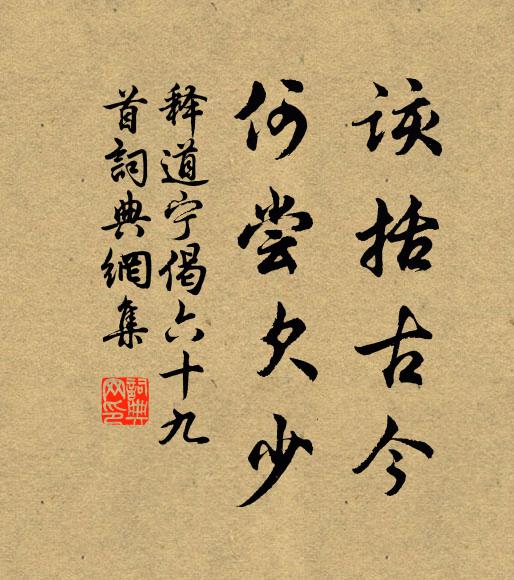 该括古今
何尝欠少
释道宁偈六十九
首詞典網集
詞典
网印